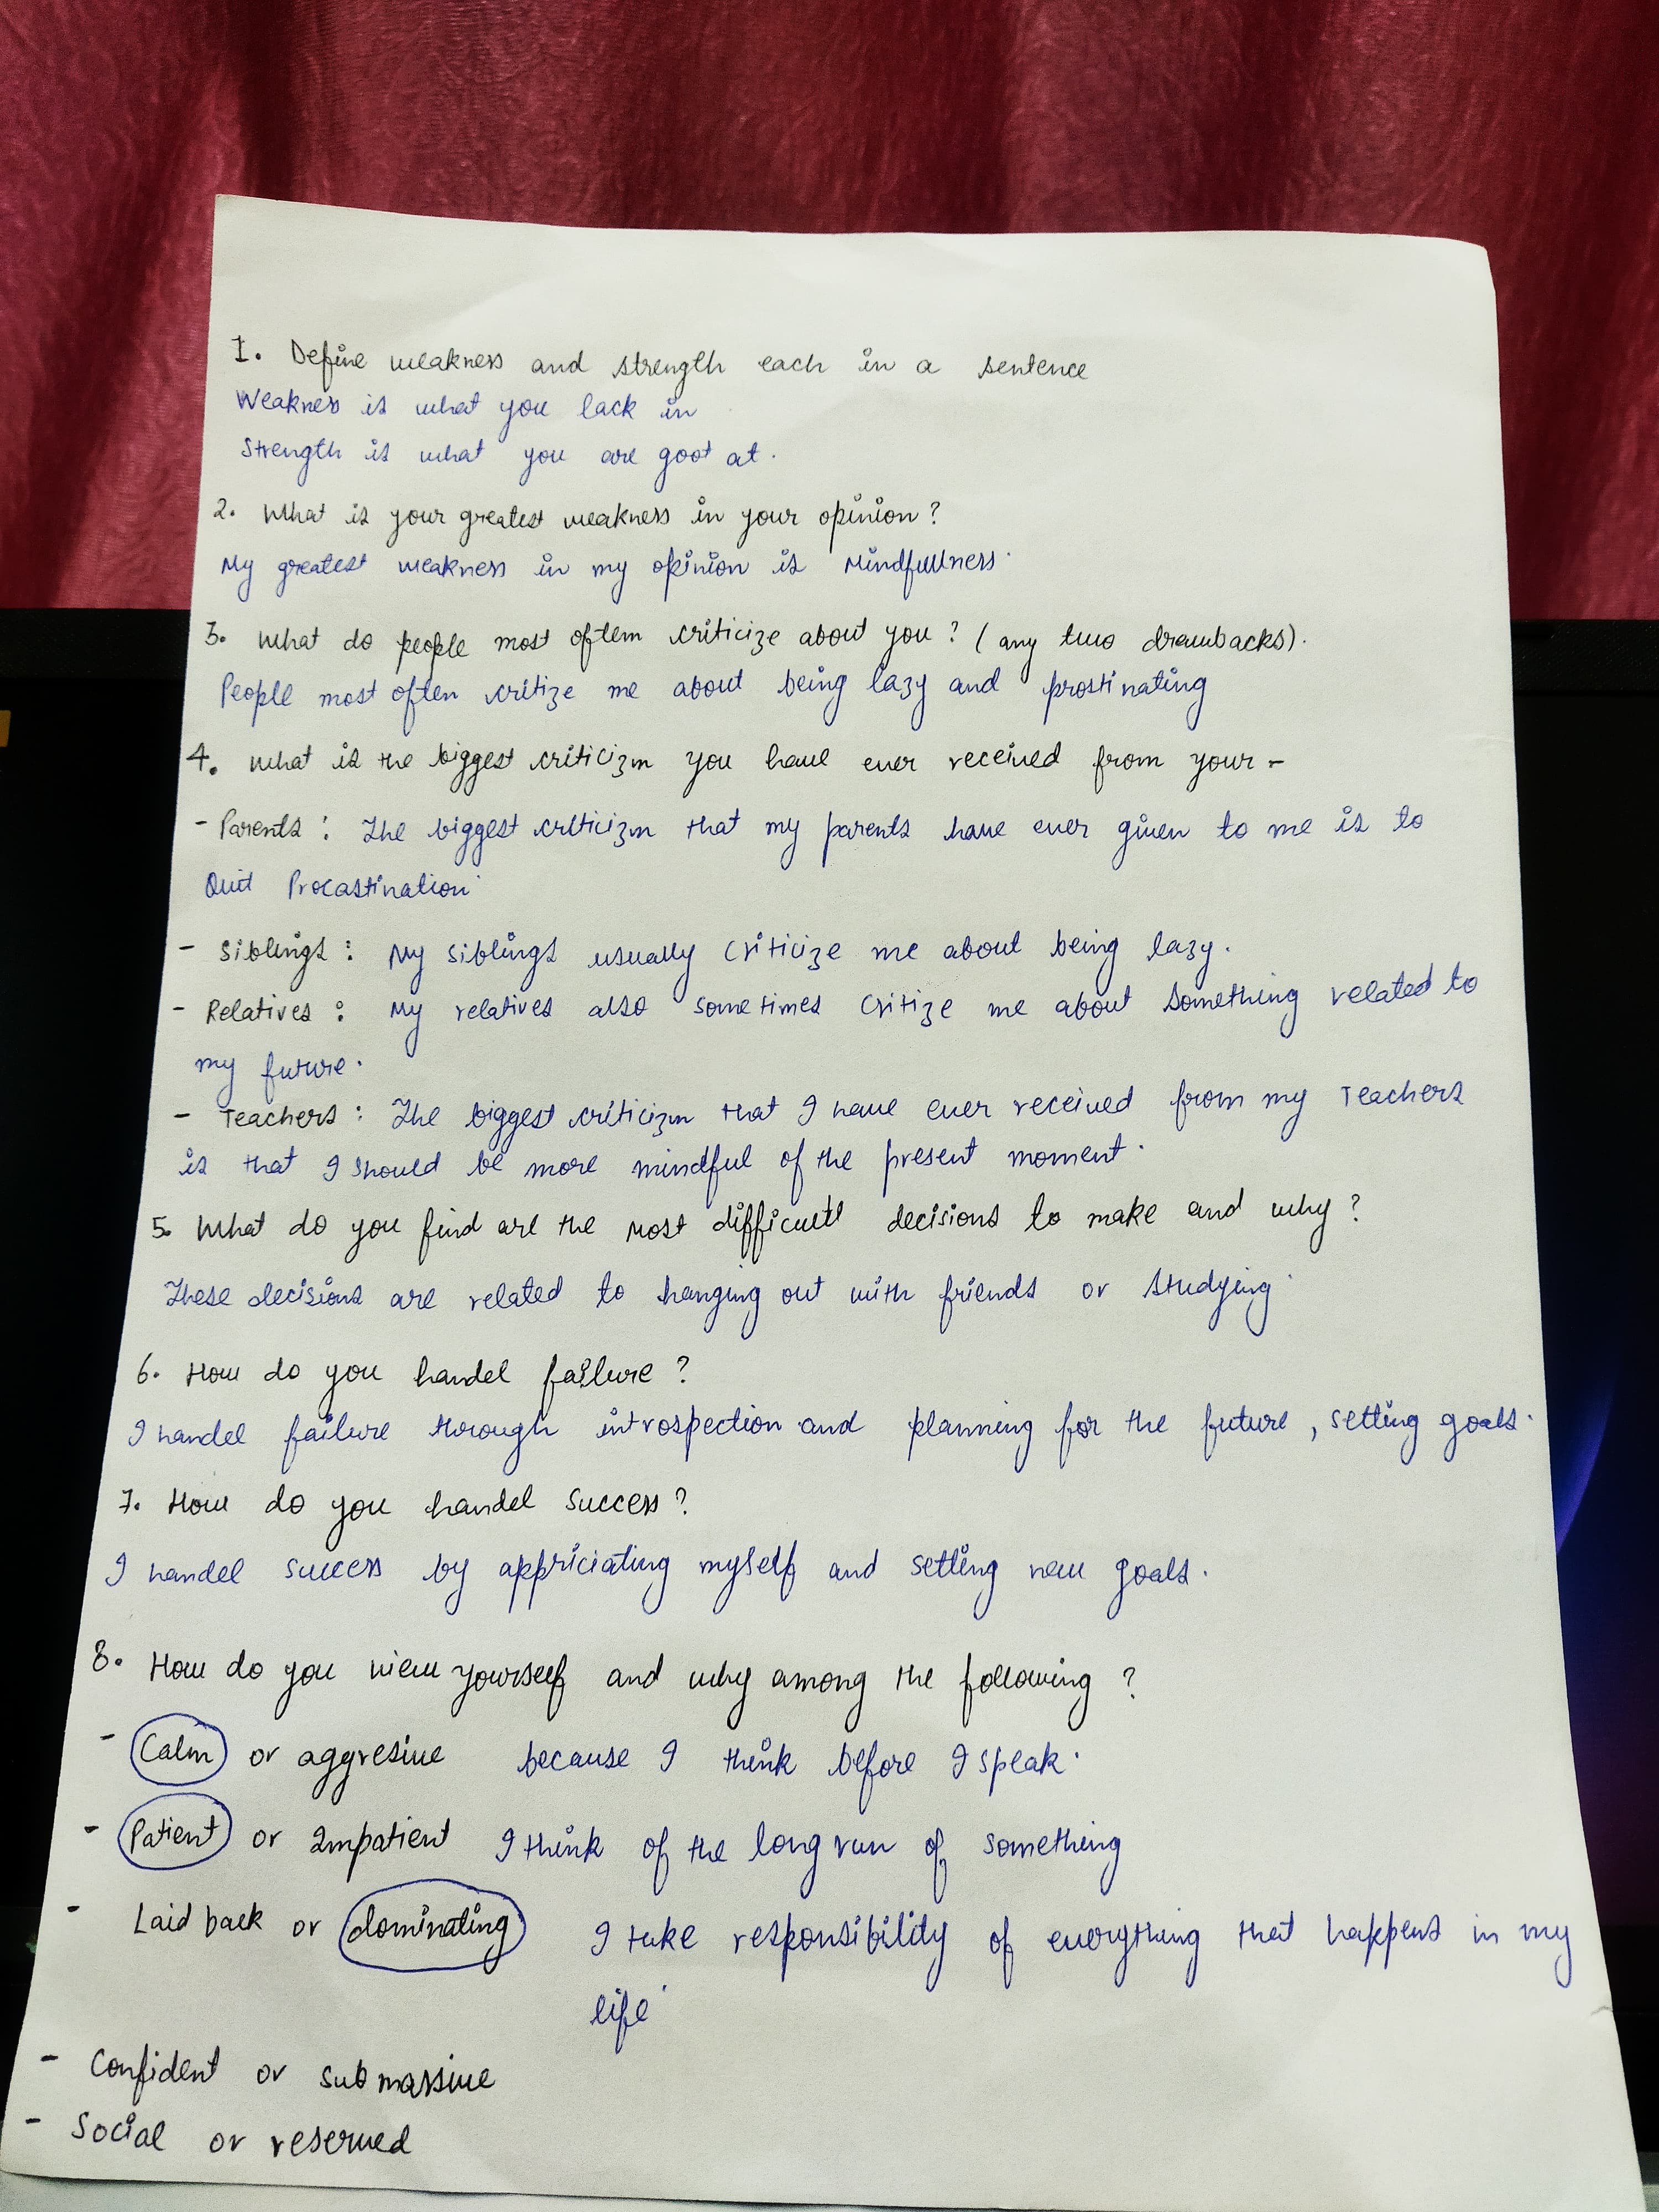 1. Define weakness and strength each in a sentence
Weakness is what you lack in
Strength is what you are goot at.
2. What is your greatest weakness in your opinion?
My greatest weakness in my opinion is Mindfullness.
3. What do people most oftem criticize about you? (any two drawbacks).
People most often critize me about being lazy and prostinating
4. What is the biggest criticizm you have ever received from your -
- Parents : The biggest criticizm that my parents have ever given to me is to
Quit Procastination.
- Siblings : My siblings usually criticize me about being lazy.
- Relatives : My relatives also sometimes critize me about something related to
my future.
- Teachers : The biggest criticizm that I have ever received from my Teachers
is that I should be more mindful of the present moment.
5. What do you find are the most difficult decisions to make and why?
These decisions are related to hanging out with friends or studying.
6. How do you handel failure?
I handel failure through introspection and planning for the future, setting goals.
7. How do you handel success?
I handel success by appriciating myself and setting new goals.
8. How do you view yourself and why among the following?
- Calm or aggresive because I think before I speak.
- Patient or Impatient I think of the long run of something
- Laid back or dominating I take responsibility of everything that happens in my
life.
- Confident or submassive
- Social or reserved